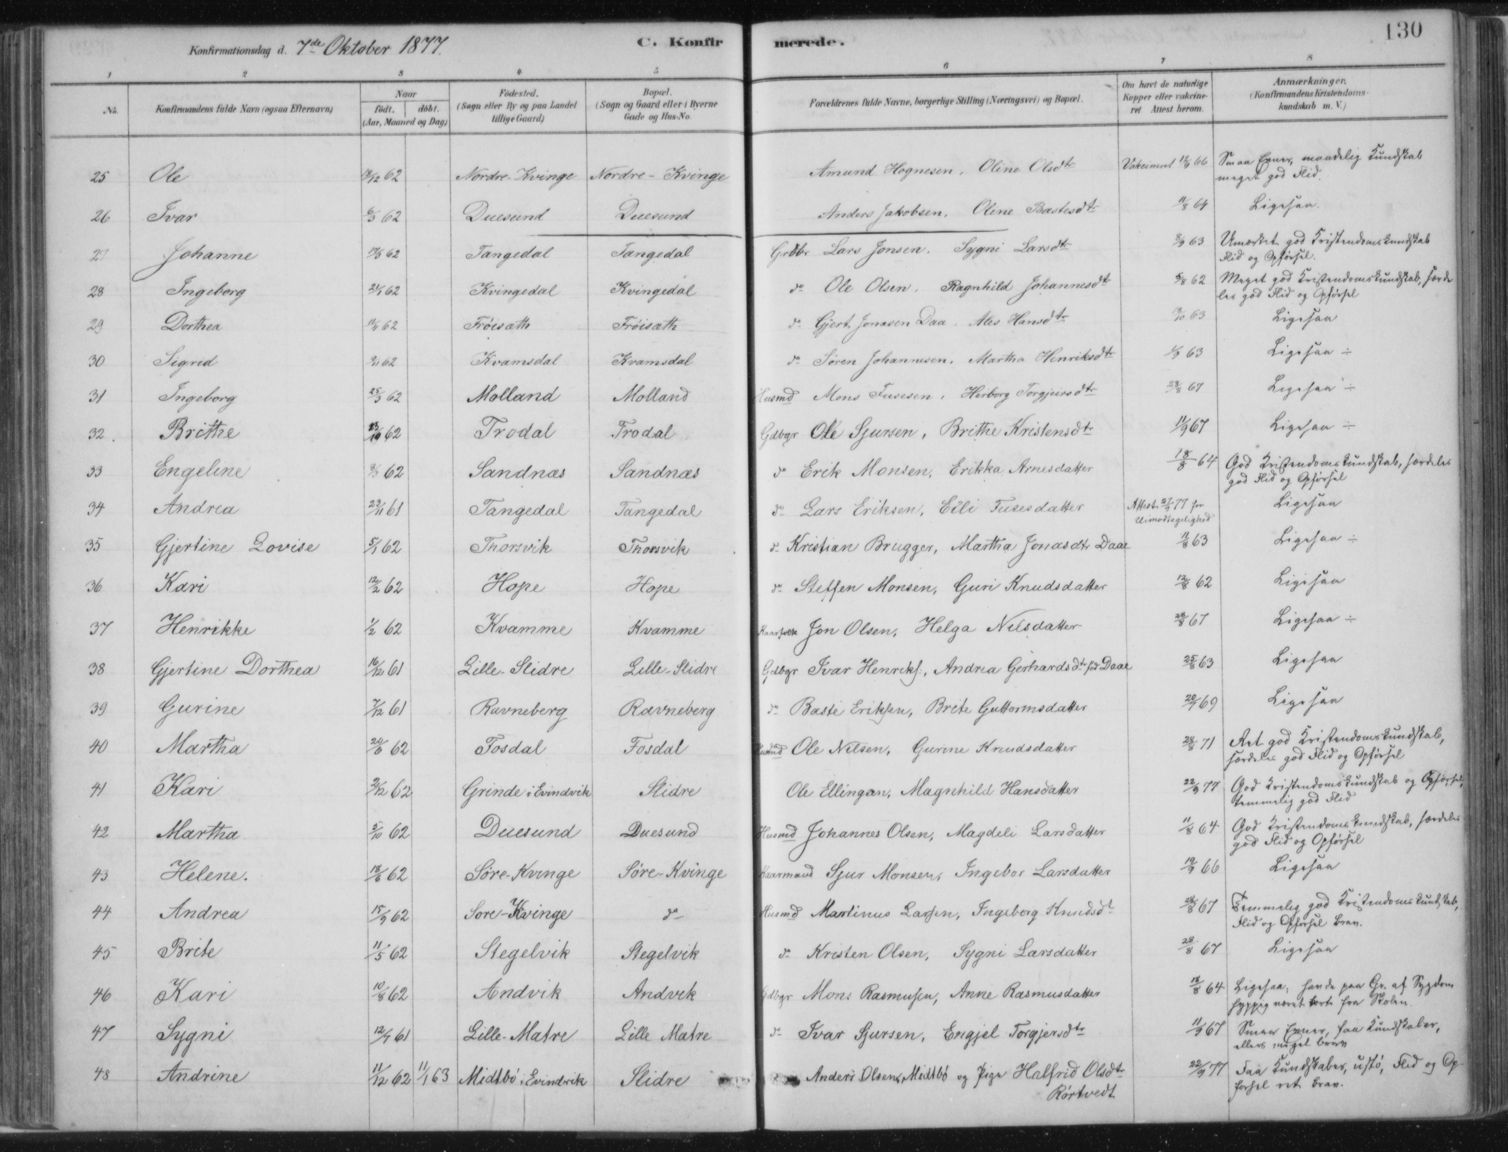 Konfirmationsdag d. 7de Oktober 1877. C. Konfirmerede. 130
1 2 3 4 5 6 7 8
No. Konfirmandens fulde Navn (ogsaa Efternavn) Naar født. døbt. (Aar, Maaned og Dag) Fødested. (Sogn eller By og paa Landet tillige Gaard) Bopæl. (Sogn og Gaard eller i Byerne Gade og Hus-No. Forældrenes fulde Navne, borgerlige Stilling (Næringsvei) og Bopæl. Om havt de naturlige Kopper eller vaccineret Attest herom. Anmærkninger. (Konfirmandens Kristendomskundskab m. V.)
25 Ole 62 Nordre-Kvinge Nordre-Kvinge Amund Hognesen, Oline Olsdt 66 Smaa Evner, maadelig Kundskab
meget god Flid.
26 Ivar 62 Duesund Duesund Anders Jakobsen, Olene Bastesdt 64 Ligesaa.
27 Johanne 62 Tangedal Tangedal Lars Jonsen, Sygni Larsdt 63 Umærket god Kristendomskundskab
Flid og Opførsel.
28 Ingeborg 62 Kvingedal Kvingedal do Ole Olsen, Ragnhild Johannesdt 62 Meget god Kristendomskundskab, særde
les god Flid og Opførsel
29 Dorthea 62 Frøisæth Frøisæth do Gjert Jonasen Daa, Hansdt 63 Ligesaa
30 Sigrid 62 Kvamsdal Kvamsdal do Søren Johannesen, Martha Henriksdt 63 Ligesaa ÷
31 Ingeborg 62 Molland Molland Husmd Mons Fusesen, Herborg Torgjersdt 67 Ligesaa ÷
32. Brithe 62 Trodal Trodal Gdbgr Ole Sjursen, Brithe Kristensdt 67 Ligesaa ÷
33 Engeline 62 Sandnæs Sandnæs do Erik Monsen, Erikka Arnesdatter 18/8 64 God Kristendomskundskab, særdeles
god Flid og Opførsel
34 Andrea 61 Tangedal Tangedal do Lars Eriksen, Eili Fusesdatter Attest 77 for
Uimodtagelighed Ligesaa
35 Gjertine Lovise 5/1 62 Thorsvik Thorsvik do Kristian Brugger, Martha Jonasdtr Daae 11/8 63 Ligesaa ÷
36 Kari 62 Hope Hope do Steffen Monsen, Guri Knudsdatter 62 Ligesaa
37 Henrikke 1/2 62 Kvamme Kvamme Jon Olsen, Helga Nelsdatter 67 Ligesaa ÷
38 Gjertine Dorthea 16/12 61 Lille-Slidre Lille-Slidre Gdbgr Ivar Henriks., Andrea Gerhardsdt Daae 25/8 63 Ligesaa
39 Gurine 7/12 61 Ravneberg Ravneberg do Baste Eriksen, Brite Guttormsdatter 69 Ligesaa
40 Martha 62 Fosdal Fosdal Husmd Ole Nelsen, Gurine Knudsdatter 71 Ret god Kristendomskundskab,
særdeles god Flid og Opførsel
41 Kari 62 Grinde i Evindvik Slidre Ole Ellingsen, Magnhild Hansdatter 77 God Kristendomskundskab og Opførsel,
temmelig god Flid
42 Martha 5/10 62 Duesund Duesund Husmd Johannes Olsen, Magdeli Larsdatter 11/8 64 God Kristendomskundskab, særdeles
god Flid og Opførsel
43 Helene. 62 Søre-Kvinge Søre-Kvinge Kaarmand Sjur Monsen, Ingebor Larsdatter 66 Ligesaa
44 Andrea 15/9 62 Søre-Kvinge do Husmd Martinus Larsen, Ingeborg Knudsdt 67 Temmelig god Kristendomskundskab,
Flid og Opførsel brav.
45 Brite 11/5 62 Stegelvik Stegelvik do Kristen Olsen, Sygni Larsdatter 67 Ligesaa
46 Kari 10/8 62 Andvik Andvik Gdbgr Mons Rasmusen, Anne Rasmusdatter 64 Ligesaa, havde paa Gr. af Sygdom
hyppig været borte fra Skolen.
47 Sygni 12/7 61 Lille-Matre Lille Matre do Ivar Sjursen, Engjel Torgjersdtr 67 Smaa Evner, faa Kundskaber,
ellers meget brav
48 Andrine 11/12 62 11/1 63 Midtbø i Evindvik Slidre Anders Olsen Midtbø og Pige Halfrid Olsdt
Rørtvedt 77 Faa Kundskaber, ustø, Flid og Op-
førsel ret brav.